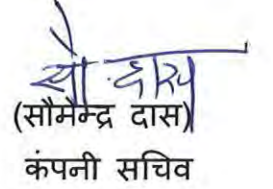 सौ दास
(सौमेन्द्र दास)
कंपनी सचिव